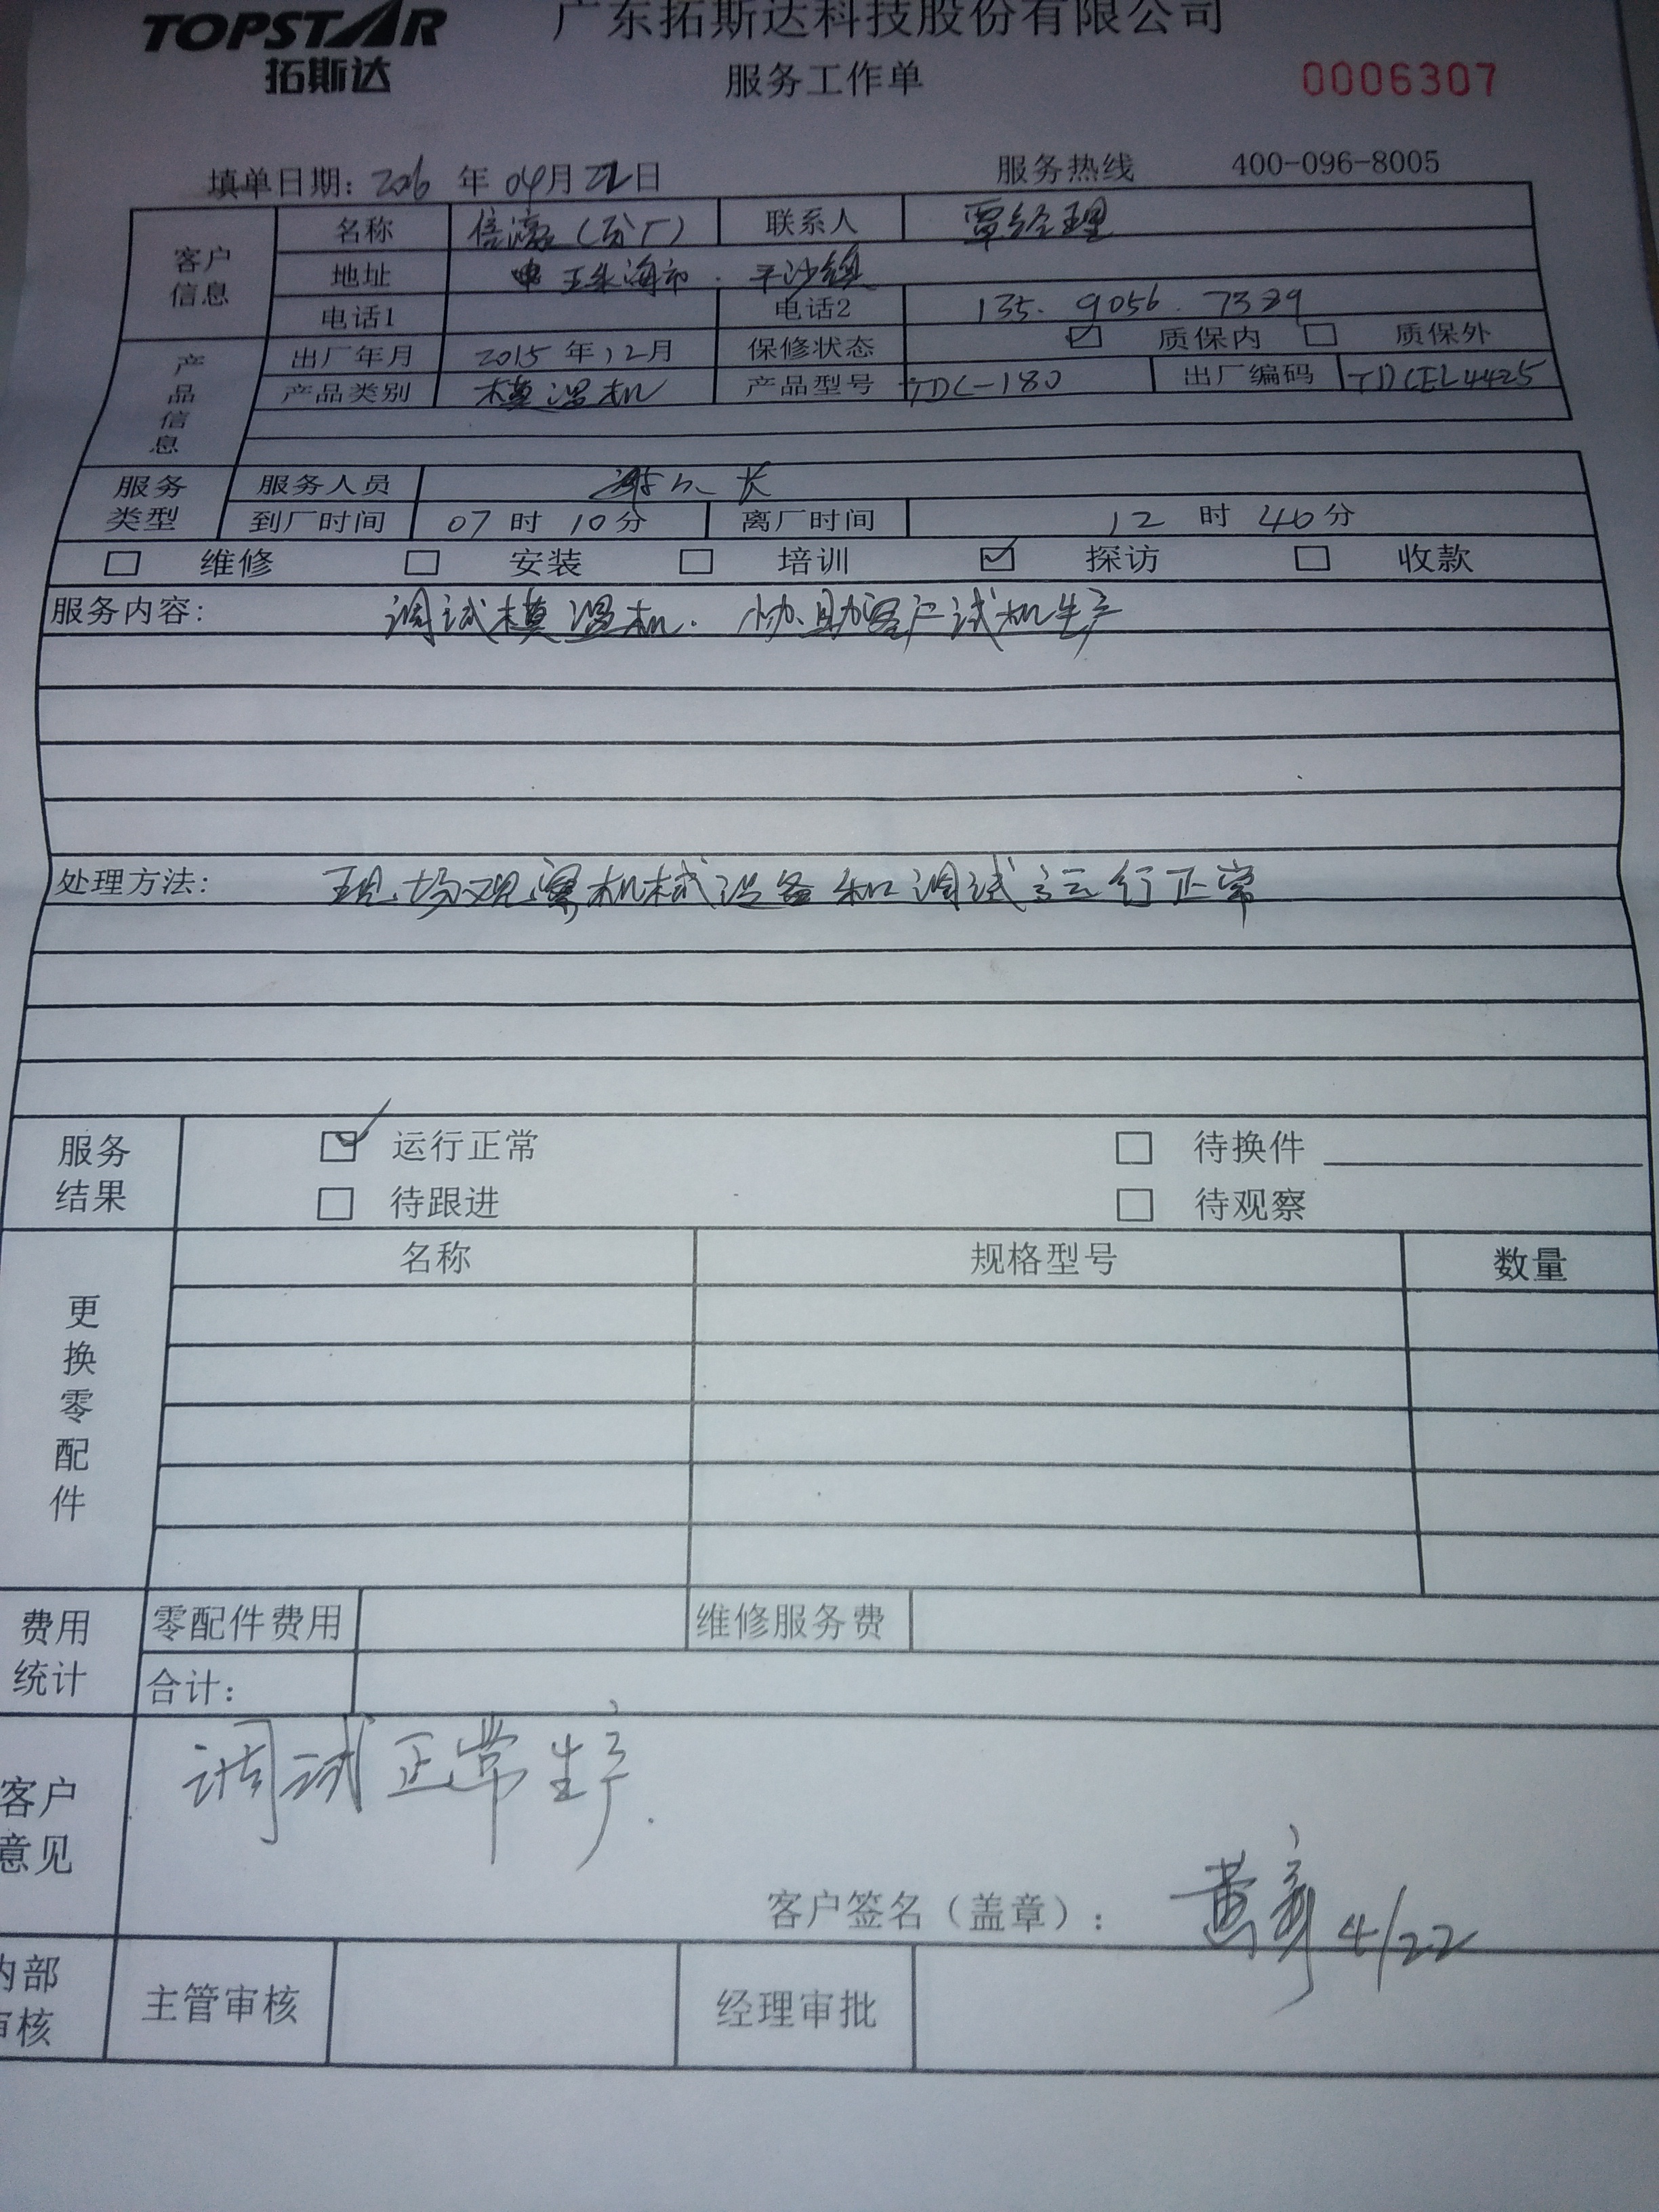 TOPSTAR
拓斯达
广东拓斯达科技股份有限公司
服务工作单
0006307
填单日期: 2016 年 04月 22日
服务热线 400-096-8005
客户信息
名称 (分厂) 联系人 覃经理
地址 珠海市. 平沙镇
电话1 电话2 135. 9056. 7339
产品信息
出厂年月 2015 年 12月 保修状态 ☑ 质保内 □ 质保外
产品类别 模温机 产品型号 TDC-180 出厂编码 TDCEL4425
服务类型
服务人员
到厂时间 07 时 10分 离厂时间 12 时 40分
□ 维修 □ 安装 □ 培训 ☑ 探访 □ 收款
服务内容: 调试模温机. 协助客户试机生产
处理方法: 现场观察机械设备和调试运行正常
服务结果
☑ 运行正常 □ 待换件
□ 待跟进 □ 待观察
更换零配件
名称 规格型号 数量
费用统计
零配件费用 维修服务费
合计:
客户意见
调试正常生产.
客户签名(盖章): 黄 4/22
内部审核
主管审核 经理审批